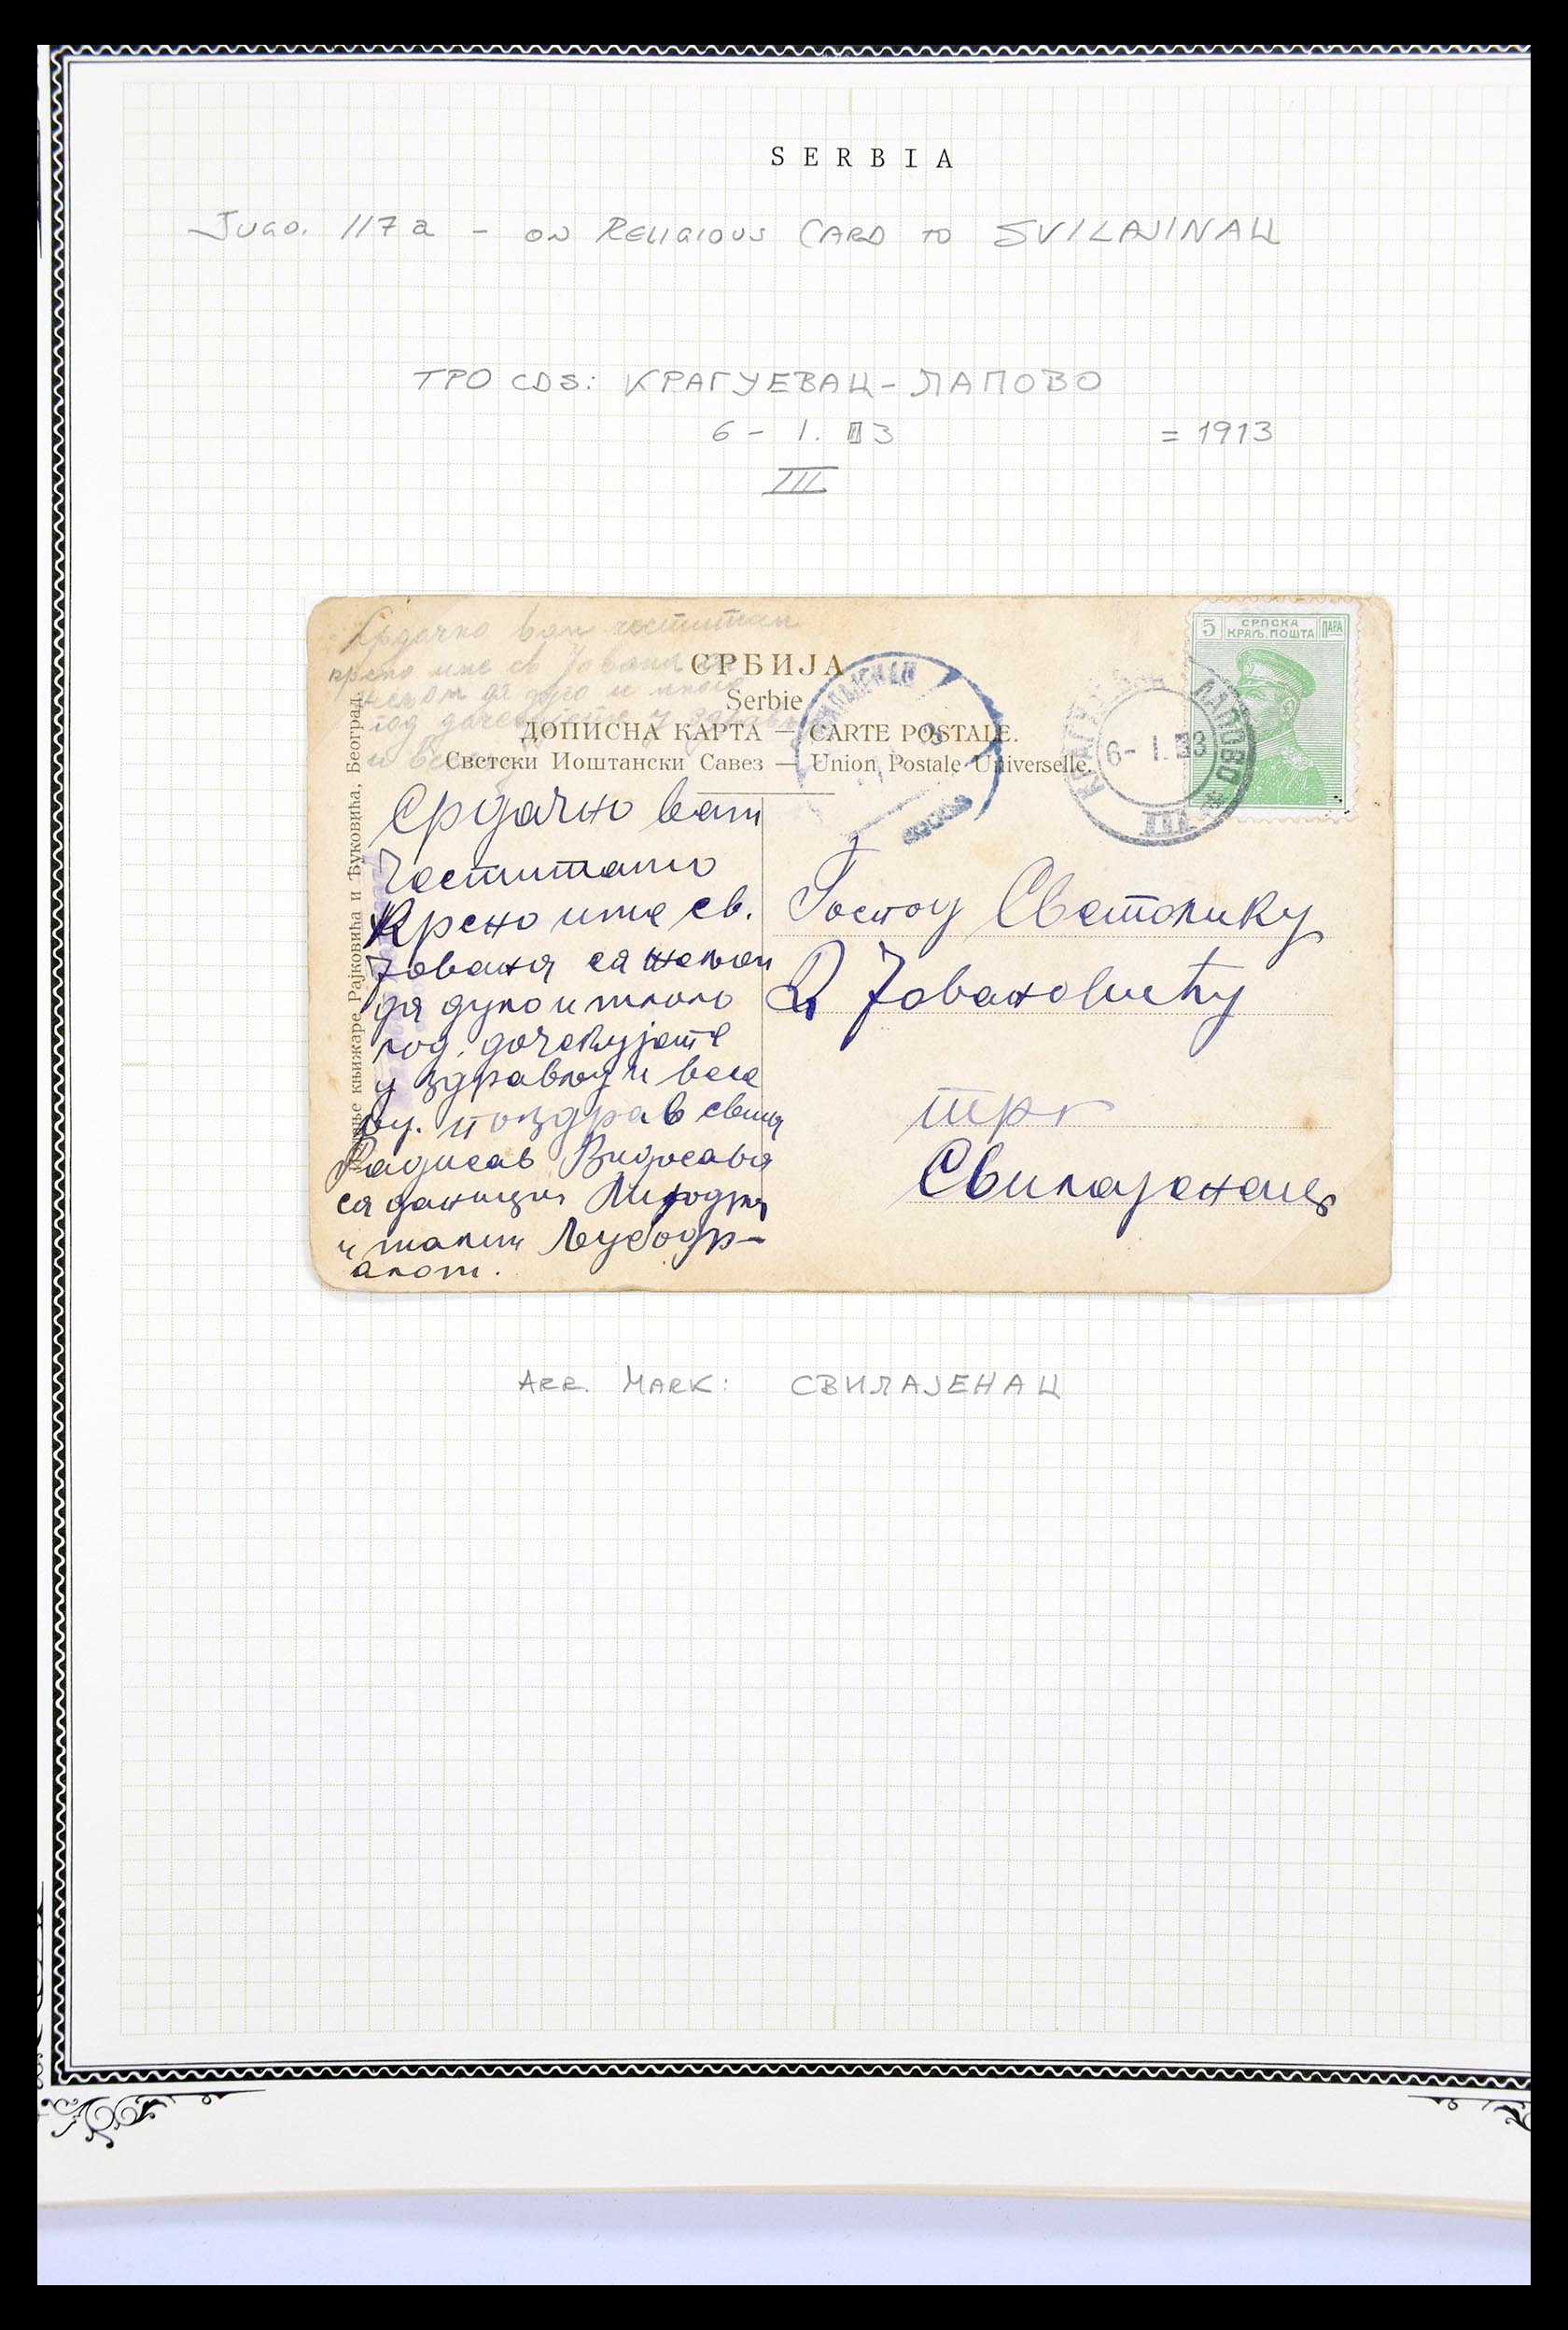 SERBIA
Jugo. 117a - on Religious Card to SVILAJINAЦ
TPO CDS: КРАГУЕВАЦ-ЛАПОВО
6 - 1. 3 = 1913
III
Срдачно вам честитам
крсно име св Јована са
жељом да дуго и много
год дочекујете у здрављу
и
СРБИЈА
Serbie
ДОПИСНА КАРТА — CARTE POSTALE.
Светски Поштански Савез — Union Postale Universelle.
књижаре Рајковића и Ђуковића, Београд.
5 СРПСКА КРАЉ. ПОШТА ПАРА
СВИЛАЈЕНАЦ
ЛАПОВО
6- 1. 3
III
Срдачно вам
Честитамо
Крсно име св.
Јована са жељом
да дуго и много
год. дочекујете
у здрављу и весе
љу. поздрав свима
Радисав Видосава
са даницом
и малим Љубодр-
агом.
Госпоу Светолику
Јовановићу
трг
Свилајенац
Arr. Mark: СВИЛАЈЕНАЦ